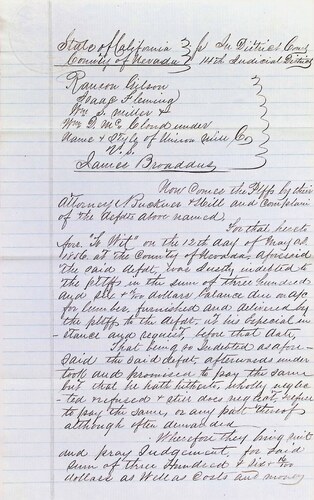 State of California } ss In District Court
County of Nevada } 14th Judicial District
Ransom Gilson
Isaac Fleming
Wm S. Miller &
Wm D. McCloud under
Name & Style of Union Mill Co
V.S.
James Broaddus
Now Comes the Pltffs by their
Attorney Buckner & Hill and Complain
of the Defdts above named
For that hereto
fore "To Wit" on the 12th day of
1856. at the County of Nevada aforesaid
the said defdt. was Justly indebted to
the pltffs in the sum of three hundred
and six & dollars balance due on a/c
for lumber furnished and delivered by
the pltffs to the defdt. at his Special in-
stance and request, before that date
That being so Indebted as afore-
said the said defdt. afterwards under
took and promised to pay the same
but that he hath hitherto wholly neglec-
ted & refused & still does neglect & refuse
to pay the same, or any part thereof
although often demanded
Wherefore they bring suit
and pray Judgement, for said
sum of three Hundred & Six &
dollars as Well as Costs and